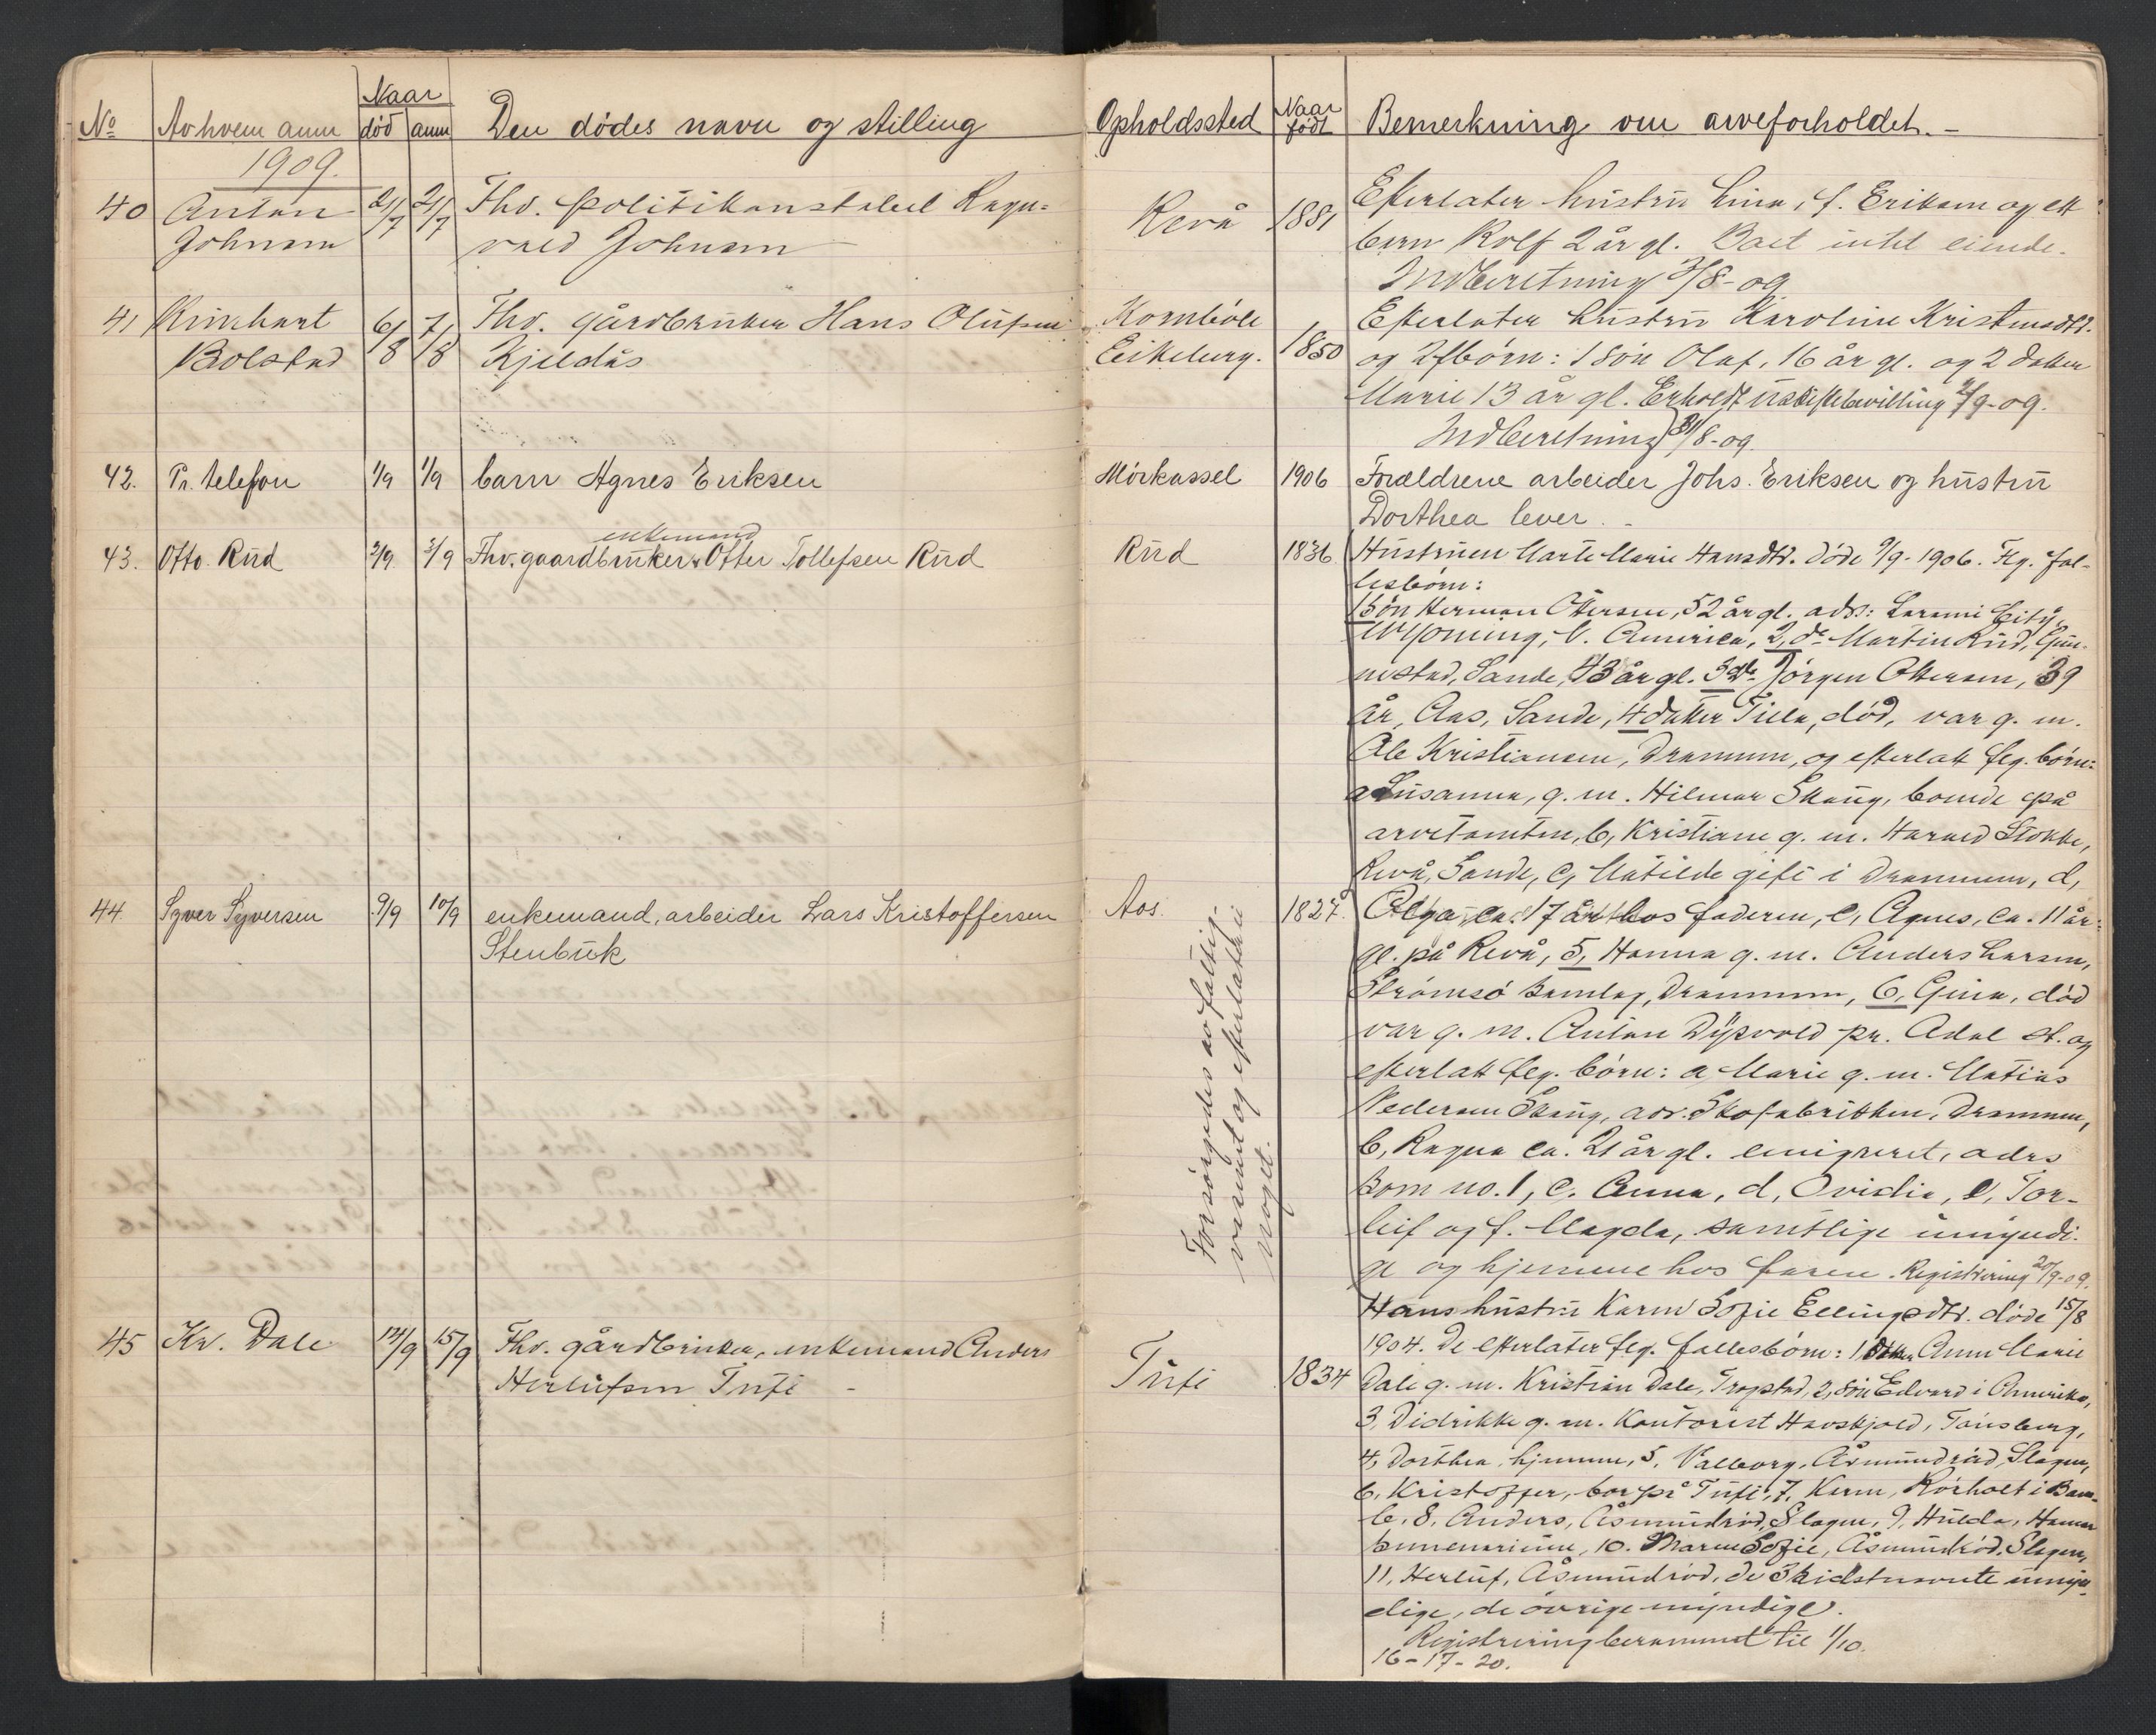 No
Av hvem anm
Naar
død
anm
Den dødes navn og stilling
Opholdssted
Naar født
Bemerkning om arveforholdet. -
1909.
40
Anton
Johnsen
21/7
21/7
Fhv. politikonstabel Ragn-
vald Johnsen
Revå
1881
Efterlater hustru Lina, f. Eriksen og ett
barn Rolf 2 år gl. Boet intet eiende.
Indberetning 3/8-09
41
Reinhart
Bolstad
6/8
7/8
Fhv. gårdbruker Hans Olufsen
Kjeldås
Kornbøle
Eikeberg.
1850
Efterlater hustru Karoline Kristensdtr.
og 2 fbørn: 1 søn Olaf, 16 år gl. og 2 datter
Marie 13 år gl. Erholdt uskiftebevilling /9-09.
Indberetning 31/8-09
42.
Pr. telefon
1/9
1/9
barn Agnes Eriksen
Mørkassel
1906
Forældrene arbeider Johs. Eriksen og hustru
Dorthea lever. -
43.
Otto Rud
2/9.
3/9
enkemand
Fhv. gaardbruker Otter Tollefsen Rud
Rud
1836
Hustruen Marte Marie Hansdtr. døde 9/9-1906. Flg. fæl-
lesbørn:
1 søn Herman Ottersen, 52 år gl. adr: Larami City,
Wyoming, N. America, 2, do Martin Rud, Gun-
nestad, Sande, 43 år gl. 3 do Jørgen Ottersen, 39
år, Aas, Sande, 4 datter Tilla, død, var g. m.
Ole Kristiansen, Drammen, og efterlatt flg. børn:
a Susanna, g. m. Hilmar Skaug, boende på
arvetomten, b, Kristiane g. m. Harald Stokke,
Revå, Sande, c, Matilde gift i Drammen, d,
Olga, ca. 17 år hos faderen, e, Agnes, ca. 11 år
gl. på Revå, 5, Hanna g. m. Anders Larsen,
Strømsø Samlag, Drammen, 6, Gina, død
var g. m. Anton Dypvold pr. Adal st. og
efterlatt flg. børn: a Marie g. m. Matias
Pedersen Skaug, adr. Skofabrikken, Drammen,
b, Ragna ca. 21 år gl. emigreret, adrs
som no. 1, c. Anna, d, Ovidia, e, Tor-
leif og f. Magda, samtlige umyndi-
ge og hjemme hos faren. Registrering 20/9-09.
44.
Syver Syversen
9/9
10/9
enkemand, arbeider Lars Kristoffersen
Stenbuk
Aos.
1827.
Forsørgedes av fattig-
væsenet og efterlatt ei
noget.
45
Kr. Dale
14/9
15/9
Fhv. gårdbruker, enkemand Anders
Herlufsen Tufte -
Tufte
1834
Hans hustru Karen Sofie Ellingsdtr. døde 15/8
1904. De efterlater flg. fællesbørn: 1 datter Anne Marie
Dale g. m. Kristian Dale, Tropstad, 2, søn Edvard i Amerika,
3, Didrikke g. m. Kontorist Havskjold, Tønsberg,
4, Dorthea, hjemme, 5, Valborg, Åsmundrød, Slagen,
6, Kristoffer, bor på Tufte, 7, Karen, Rørholt i Bam-
le, 8, Anders, Åsmundrød, Slagen, 9, Hulda, Hamar
10. Maren Sofie, Åsmundrød, Slagen,
11, Herluf, Åsmundrød, de 3 sidstnævnte umyn-
dige, de øvrige myndige.
Registrering berammet til 1/10.
16-17-20.